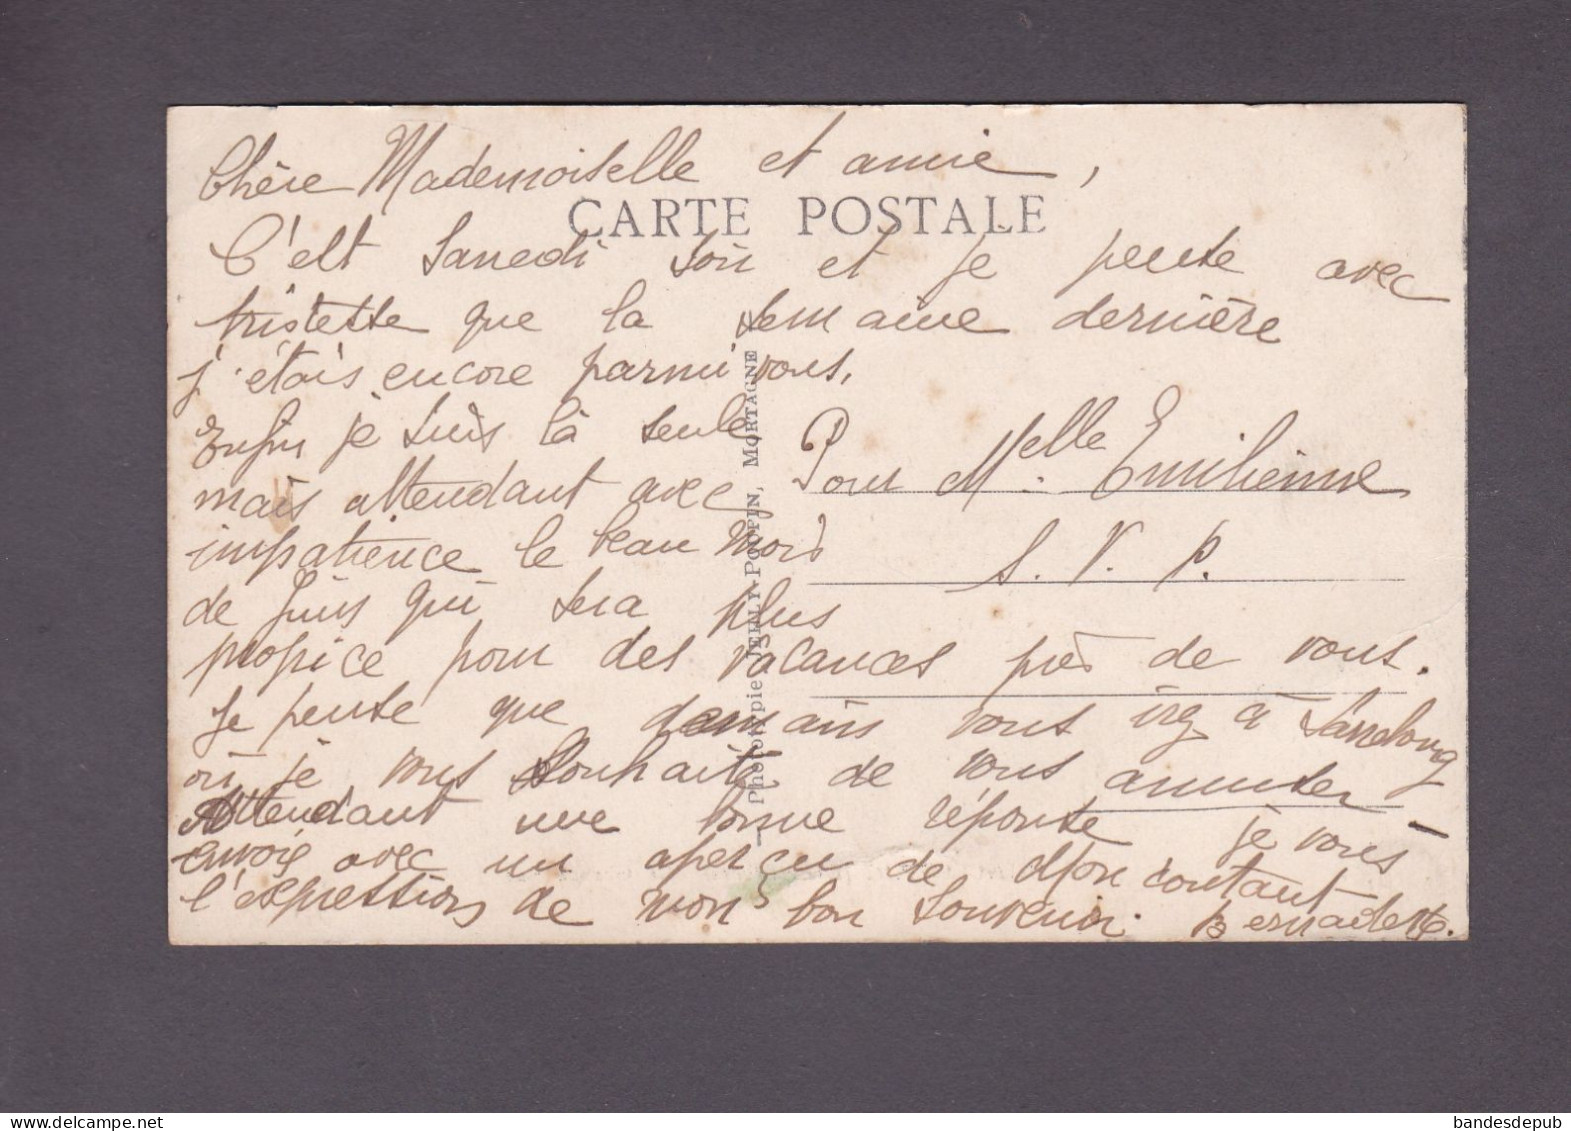 Chère Mademoiselle et amie,
CARTE POSTALE
C'est Samedi soir et je pense avec
tristesse que la semaine dernière
j'étais encore parmi vous,
Enfin je suis là seule
mais attendant avec
impatience le beau mois
de Juin qui sera plus
propice pour des vacances près de vous.
Je pense que demain vous irez à
où je vous souhaite de vous amuser
Attendant une bonne réponse je vous
envoie avec un aperçu de
l'expression de mon bon souvenir. Bernadette.
Pour Melle. Emilienne
S. V. P.
Phototypie JEHLY-POUPIN, MORTAGNE
bandesdepub